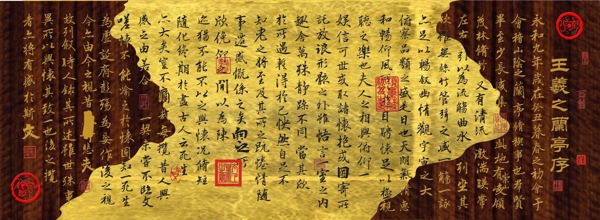 王羲之蘭亭序
永和九年歲在癸丑暮春之初會于
會稽山陰之蘭亭脩稧事也群賢
畢至少長咸集此地有崇山峻領
茂林脩竹又有清流激湍暎帶
左右引以為流觴曲水列坐其
次雖無絲竹管弦之盛一觴一詠
亦足以暢叙幽情觀宇宙之大
俯察品類之盛是日也天朗氣清惠
和暢仰風所以遊目騁懷足以極視
聽之樂也夫人之相與俯仰一
娛信可世或取諸懷抱或因寄所
託放浪形骸之外雖悟言一室之內
趣舍萬殊靜躁不同當其欣
於所遇蹔得於己怏然自足不
知老之將至及其所之既惓情隨
事遷感慨係之矣向之所
欣俛仰之間以為陳
迹猶不能不以之興懷況脩短
隨化終期於盡古人云死生
亦大矣豈不痛哉每攬昔人興
感之由若合一契未嘗不臨文
嗟悼不能喻之於懷固知一死生
為虛誕齊彭殤為妄作後之視
今亦由今之視昔悲夫
故列叙時人錄其所述雖世殊事
異所以興懷其致一也後之攬
者亦將有感於斯文